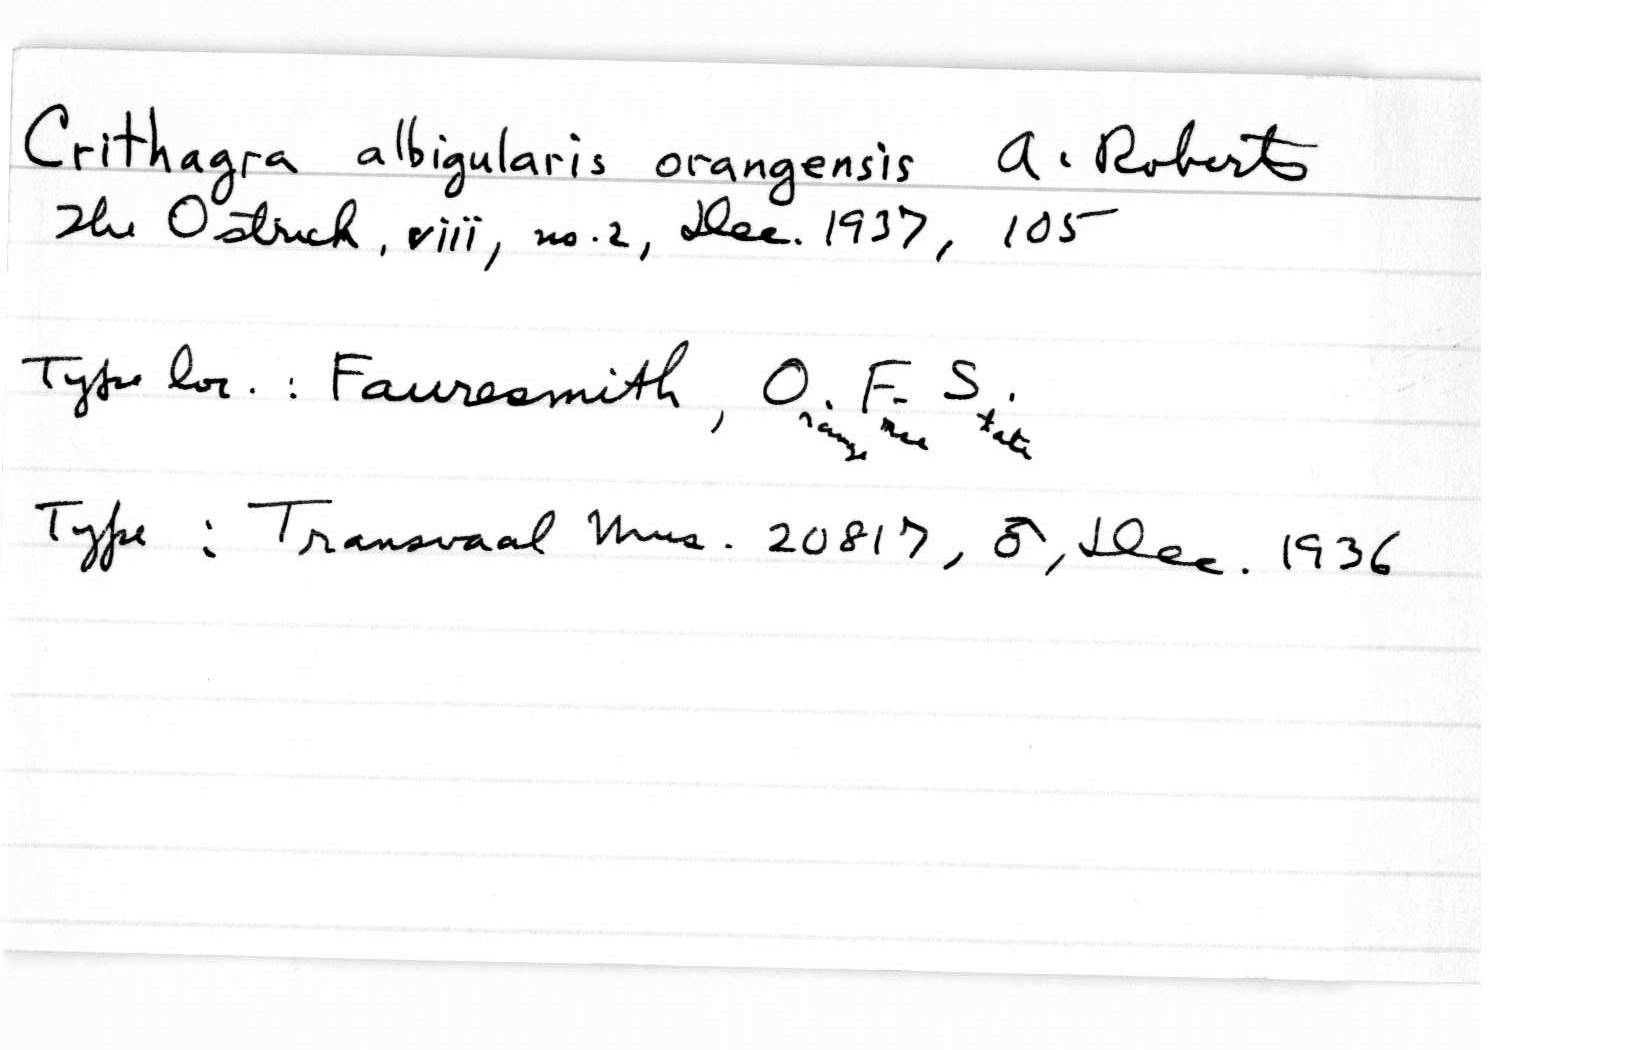 Crithagra albigularis orangensis A. Roberts
The Ostrich, viii, no. 2, Dec. 1937, 105
Type loc. : Fauresmith, O. F. S.
range ree tate
Type : Transvaal Mus. 20817, ♂, Dec. 1936